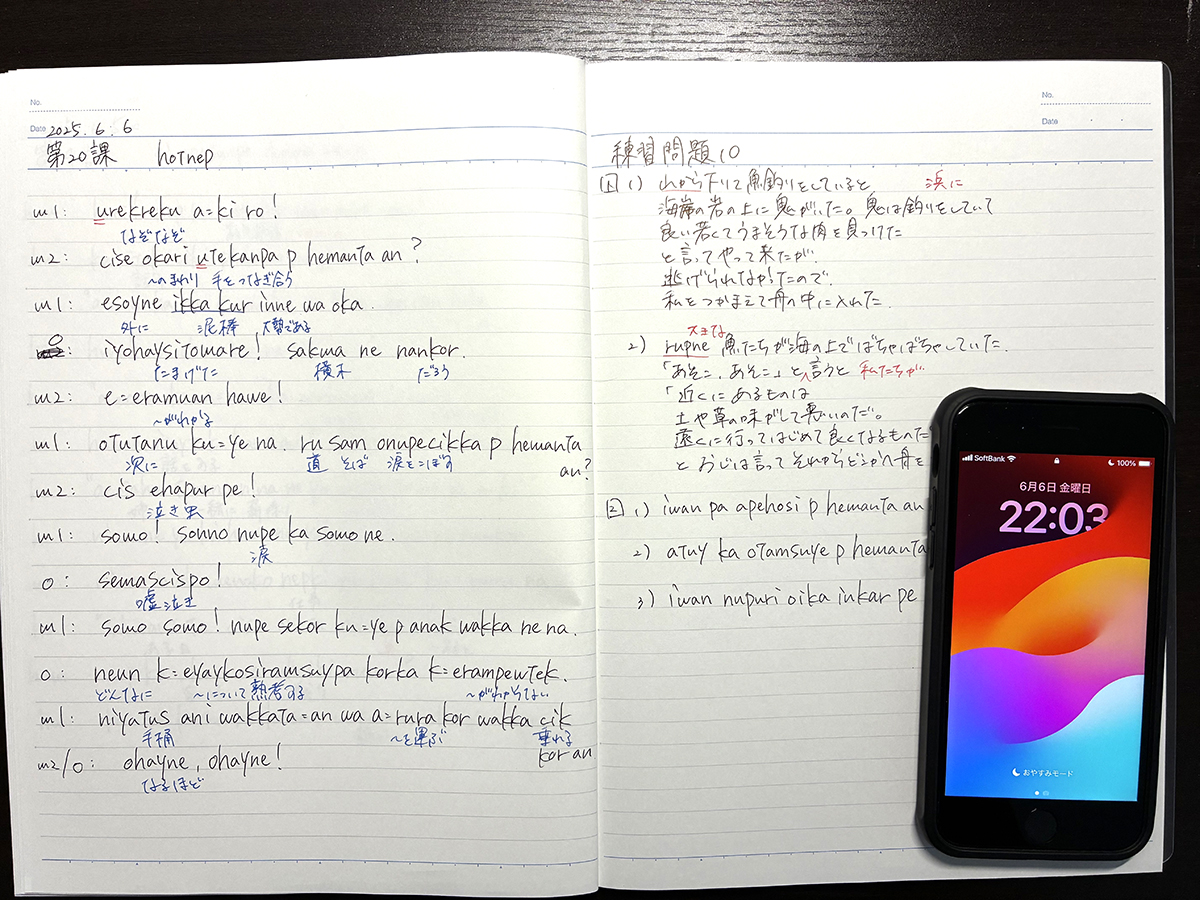 No.
Date 2025.6.6
第20課 hotnep
m1: urekreku a=ki ro!
なぞなぞ
m2: cise okari utekanpa p hemanta an?
〜のまわり 手をつなぎ合う
m1: esoyne ikka kur inne wa oka.
外に 泥棒 大勢である
o: iyohaysitomare! sakma ne nankor.
たまげた 横木 だろう
m2: e=eramuan hawe!
〜がわかる
m1: otutanu ku=ye na. ru sam onupecikka p hemanta an?
次に 道 そば 涙をこぼす
m2: cis ehapur pe!
泣き虫
m1: somo! sonno nupe ka somo ne.
涙
o: semascispo!
嘘泣き
m1: somo somo! nupe sekor ku=ye p anak wakka ne na.
o: neun k=eyaykosiramsuypa korka k=erampewtek.
どんなに 〜について熟考する 〜がわからない
m1: niyatus ani wakkata=an wa a=rura kor wakka cik kor an
手桶 〜を運ぶ 垂れる
m2/o: ohayne, ohayne!
なるほど
No.
Date
練習問題10
1 1) 山から下りて魚釣りをしていると 浜に
海岸の岩の上に鬼がいた。鬼は釣りをしていて
良い若くてうまそうな肉を見つけた
と言ってやって来たが、
逃げられなかったので、
私をつかまえて舟の中に入れた。
大きな
2) rupne 魚たちが海の上でばちゃばちゃしていた。
「あそこ、あそこ」と言うと 私たちが
「近くにあるものは
土や草の味がして悪いのだ。
遠くに行ってはじめて良くなるものだ
とおじは言ってそれからどこかへ舟を
2 1) iwan pa apehosi p hemanta an
2) atuy ka otamsuye p hemanta
3) iwan nupuri oika inkar pe
SoftBank 100%
6月6日 金曜日
22:03
おやすみモード